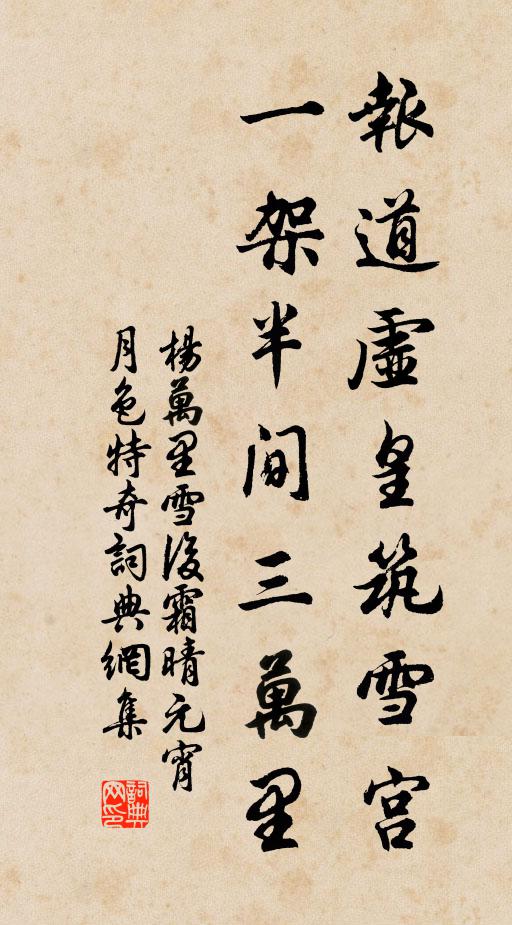 報道虛皇筑雪宮
一架半间三萬里
楊萬里雪後霜晴元宵
月色特奇詞典網集
詞典網印